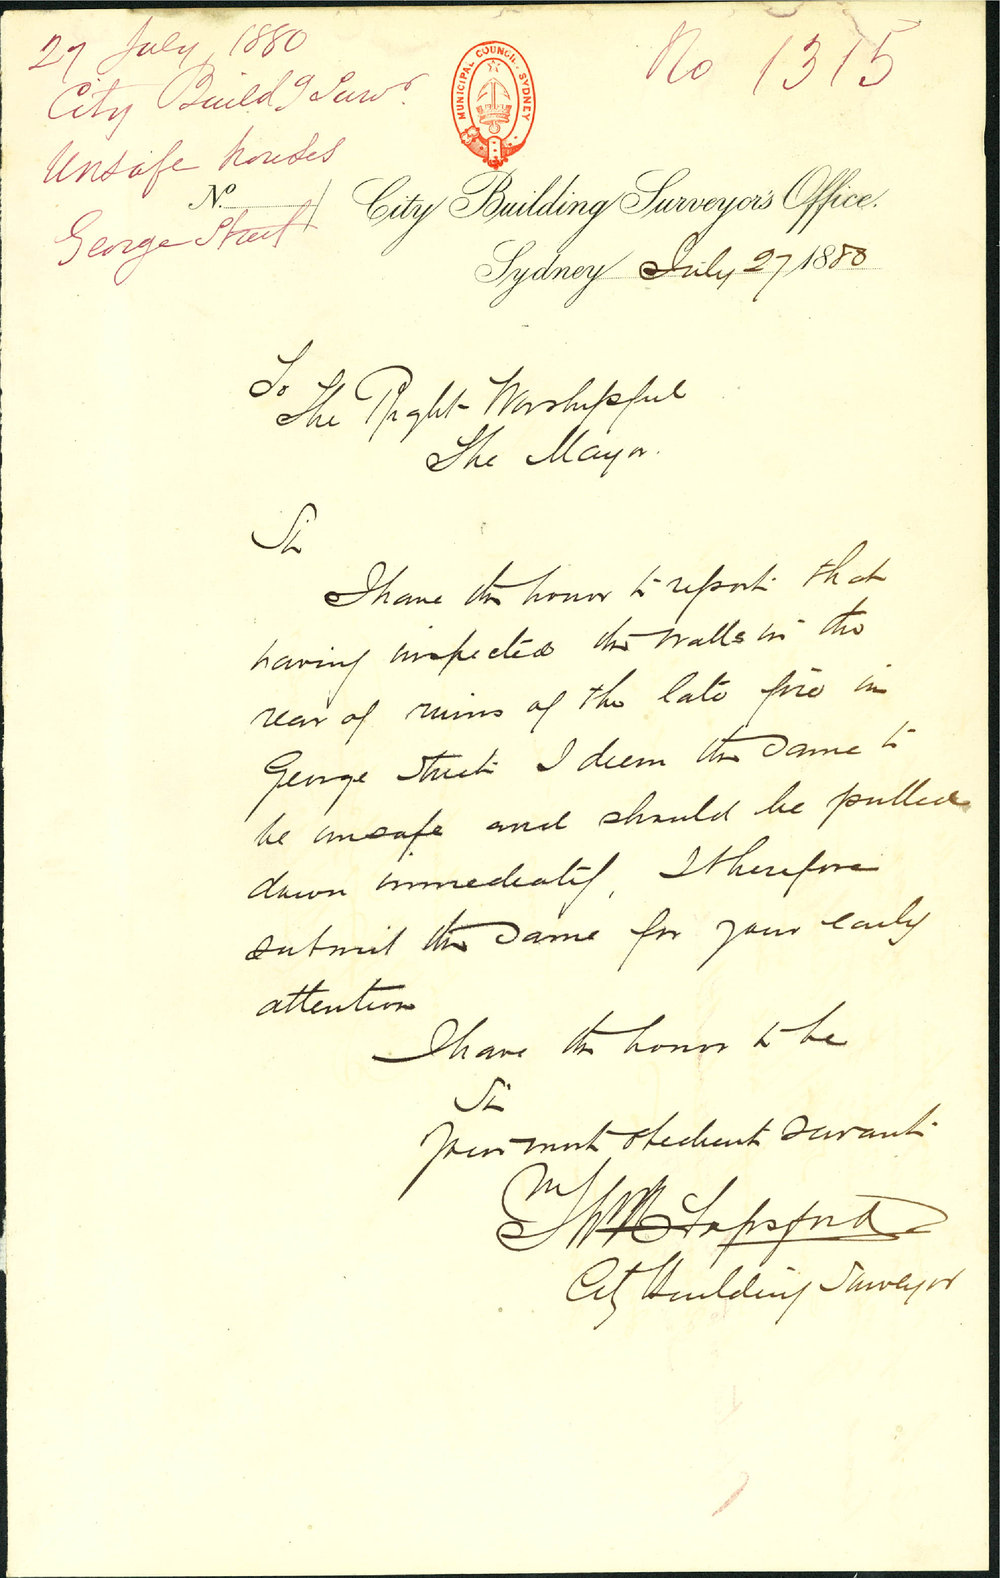 27 July 1880
City Build'g Survr.
Unsafe houses
George Street
No 1315
MUNICIPAL COUNCIL. SYDNEY
No.
City Building Surveyor's Office.
Sydney July 27 1880
To
The Right Worshipful
The Mayor.
Sir
I have the honor to report that
having inspected the walls in the
rear of ruins of the late fire in
George Street I deem the same to
be unsafe and should be pulled
down immediately, I therefore
submit the same for your early
attention
I have the honor to be
Sir
Your most obedient servant
Sapsford
City Building Surveyor